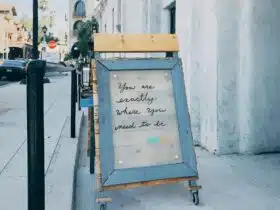 You are
exactly
where you
need to be